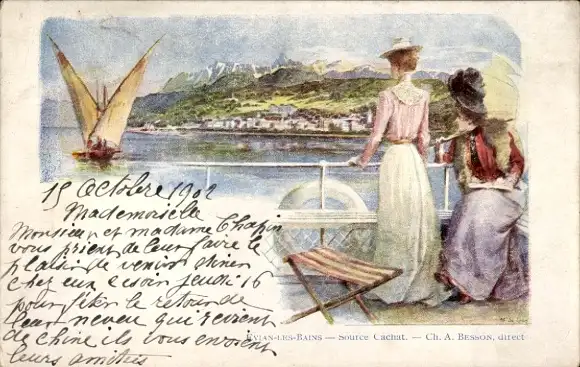 15 Octobre 1902
Mademoiselle
Monsieur et madame Chapin
vous prient de leur faire le
plaisir de venir diner
chez eux ce soir jeudi 16
pour fêter le retour de
leur neveu qui revient
de chine ils vous envoient
leurs amitiés
EVIAN-LES-BAINS — Source Cachat. — Ch. A. BESSON, direct